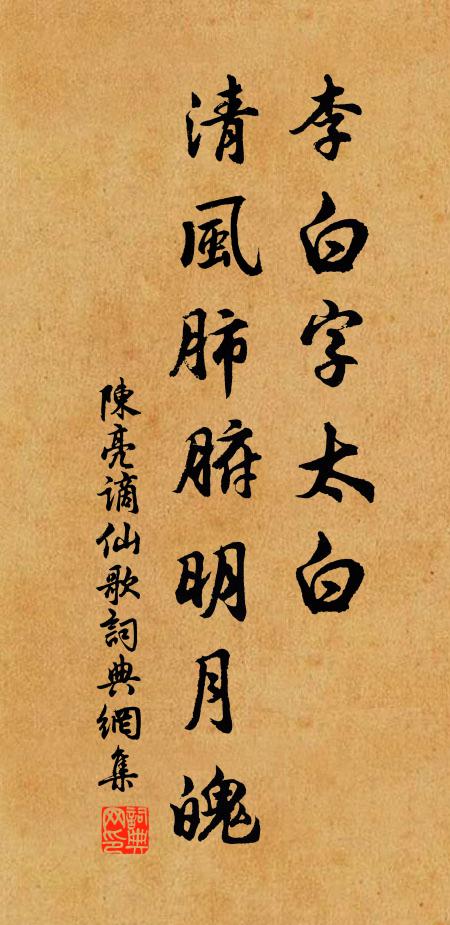 李白字太白
清風肺腑明月魄
陳亮謫仙歌詞典網集
詞典網印